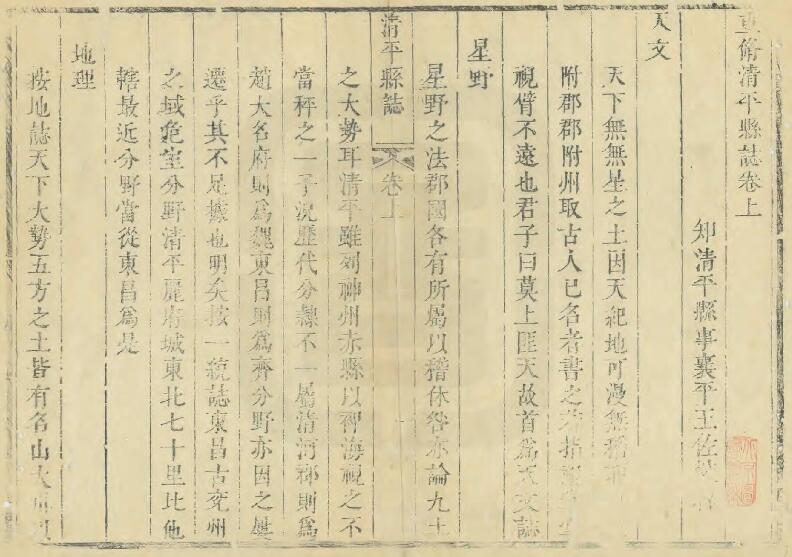 重脩清平縣誌卷上
知清平縣事襄平王佐
天文
天下無無星之土因天紀地可漫無稽
附郡郡附州取古人已名者書之若指
視臂不遠也君子曰莫上匪天故首爲天文誌
星野
星野之法郡國各有所屬以稽休咎亦論九土
清平縣誌 卷上
之大勢耳清平雖列神州赤縣以裨海視之不
當稊之一子況歷代分隸不一屬清河郡則爲
趙大名府則爲魏東昌則爲齊分野亦因之屡
遷乎其不足據也明矣按一統誌東昌古兗州
之域危室分野清平麗府城東北七十里比他
轄最近分野當從東昌爲是
地理
按地誌天下大勢五方之土皆有名山大